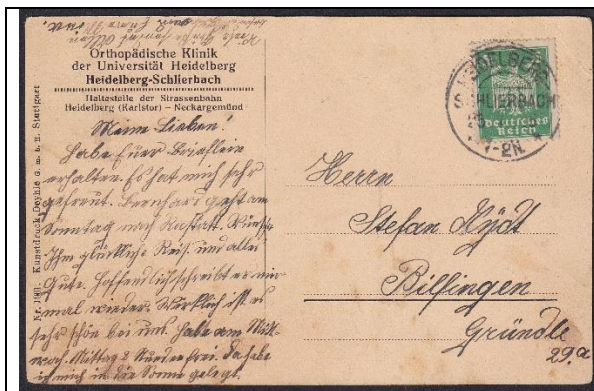 Orthopädische Klinik
der Universität Heidelberg
Heidelberg-Schlierbach
Haltestelle der Strassenbahn
Heidelberg (Karlstor) — Neckargemünd
Meine Lieben!
Habe Euer Brieflein
erhalten. Es hat mich sehr
gefreut. Bernhard geht am
Sonntag nach Rastatt. Wünsche
Ihm glückliche Reise und alles
Gute. Hoffentlich schreibt er mir
mal wieder. Wirklich ist es
sehr schön bei uns. Habe am Mitt-
woch Mittag 2 Stunden frei. Da habe
ich mich in die Sonne gelegt.
Kunstdruck Doyhle G. m. b. H. Stuttgart
HEIDELBERG
SCHLIERBACH
Deutsches
Reich
Herrn
Stefan
Bilfingen
Gründle
29.a